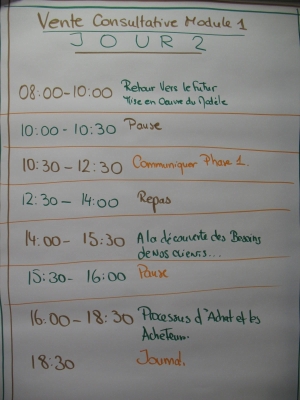 Vente Consultative Module 1
JOUR 2
08:00-10:00 Retour Vers le Futur
Mise en Oeuvre du Modèle
10:00-10:30 Pause
10:30-12:30 Communiquer Phase 1.
12:30-14:00 Repas
14:00-15:30 A la découverte des Besoins
de Nos clients...
15:30-16:00 Pause
16:00-18:30 Processus d'Achat et les
Acheteurs.
18:30 Journal.